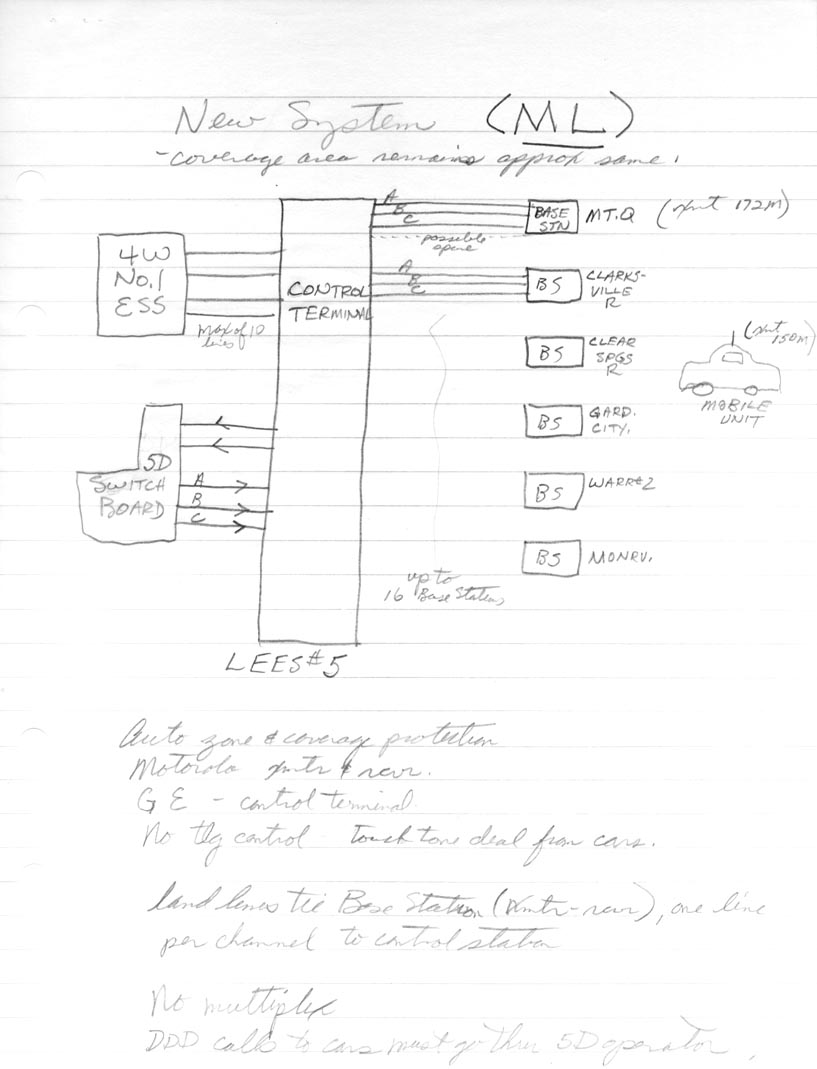 New System (ML)
-coverage area remains approx same.
A
B
C
BASE STN
MT.Q
(xmt 172M)
possible spare
4W
No.1
ESS
CONTROL
TERMINAL
A
B
C
BS
CLARKS-
VILLE
R
max of 10
lines
BS
CLEAR
SPGS
R
(xmt
150M)
MOBILE
UNIT
BS
GARD.
CITY.
5D
SWITCH
BOARD
A
B
C
BS
WARR#2
BS
MONRV.
up to
16 Base Stations
LEES#5
Auto zone & coverage protection
Motorola xmtr & rcvr.
G E - control terminal.
No tlg control Touch tone deal from cars.
land lines tie Base Station (Xmtr-rcvr), one line
per channel to control station
No multiplex
DDD calls to cars must go thru 5D operator.